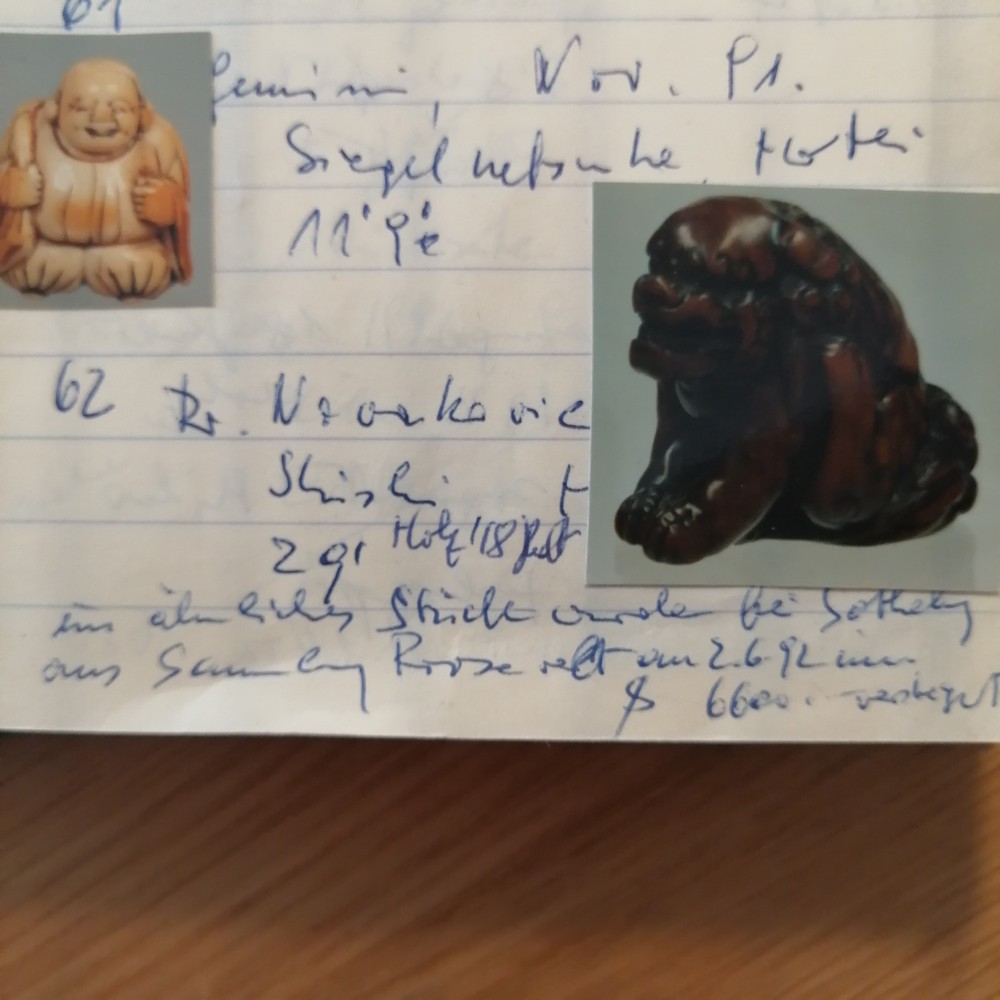 61
Gemini, Nov. 91.
Siegelnetsuke, Hotei
62 Dr. Novakovic
Shishi
Holz 18 Jhdt
ein ähnliches Stück wurde bei Sotheby
aus Sammlung Roosevelt am 2.6.92 um
$ 6600.- versteigert